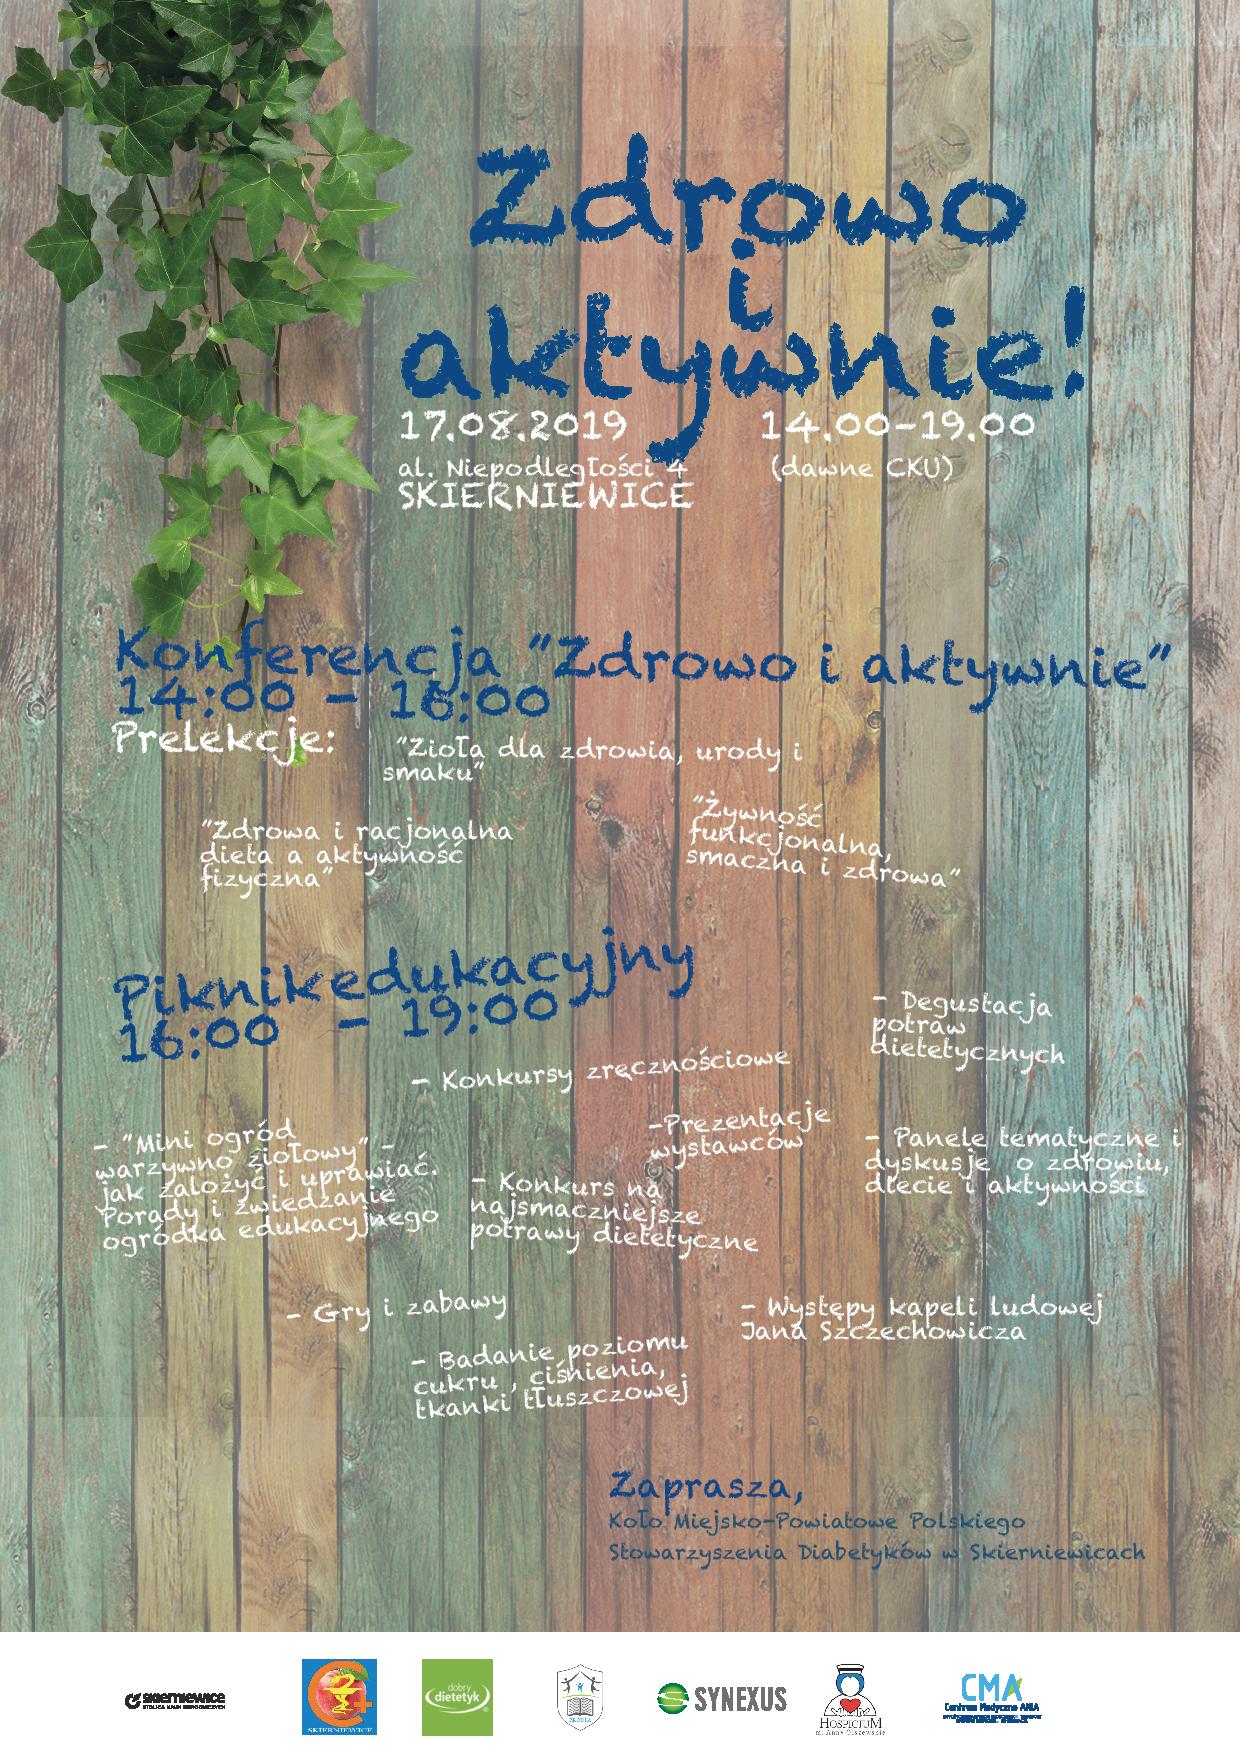 Zdrowo
i
aktywnie!
17.08.2019 14.00-19.00
al. Niepodległości 4 (dawne CKU)
SKIERNIEWICE
Konferencja "Zdrowo i aktywnie"
14:00 - 16:00
Prelekcje:
"Zioła dla zdrowia, urody i
smaku"
"Zdrowa i racjonalna
dieta a aktywność
fizyczna"
"Żywność
funkcjonalna,
smaczna i zdrowa"
Piknik edukacyjny
16:00 - 19:00
- Degustacja
potraw
dietetycznych
- Konkursy zręcznościowe
-Prezentacje
wystawców
- "Mini ogród
warzywno ziołowy" -
jak założyć i uprawiać.
Porady i zwiedzanie
ogródka edukacyjnego
- Konkurs na
najsmaczniejsze
potrawy dietetyczne
- Panele tematyczne i
dyskusje o zdrowiu,
diecie i aktywności
- Gry i zabawy
- Występy kapeli ludowej
Jana Szczechowicza
- Badanie poziomu
cukru , ciśnienia,
tkanki tłuszczowej
Zaprasza,
Koło Miejsko-Powiatowe Polskiego
Stowarzyszenia Diabetyków w Skierniewicach
skierniewice
STOLICA NAUK OGRODNICZYCH
SKIERNIEWICE
dobry
dietetyk
ŹRÓDŁA
SYNEXUS
HOSPICJUM
im. Anny Olszewskiej
CMA
Centrum Medyczne ANIA